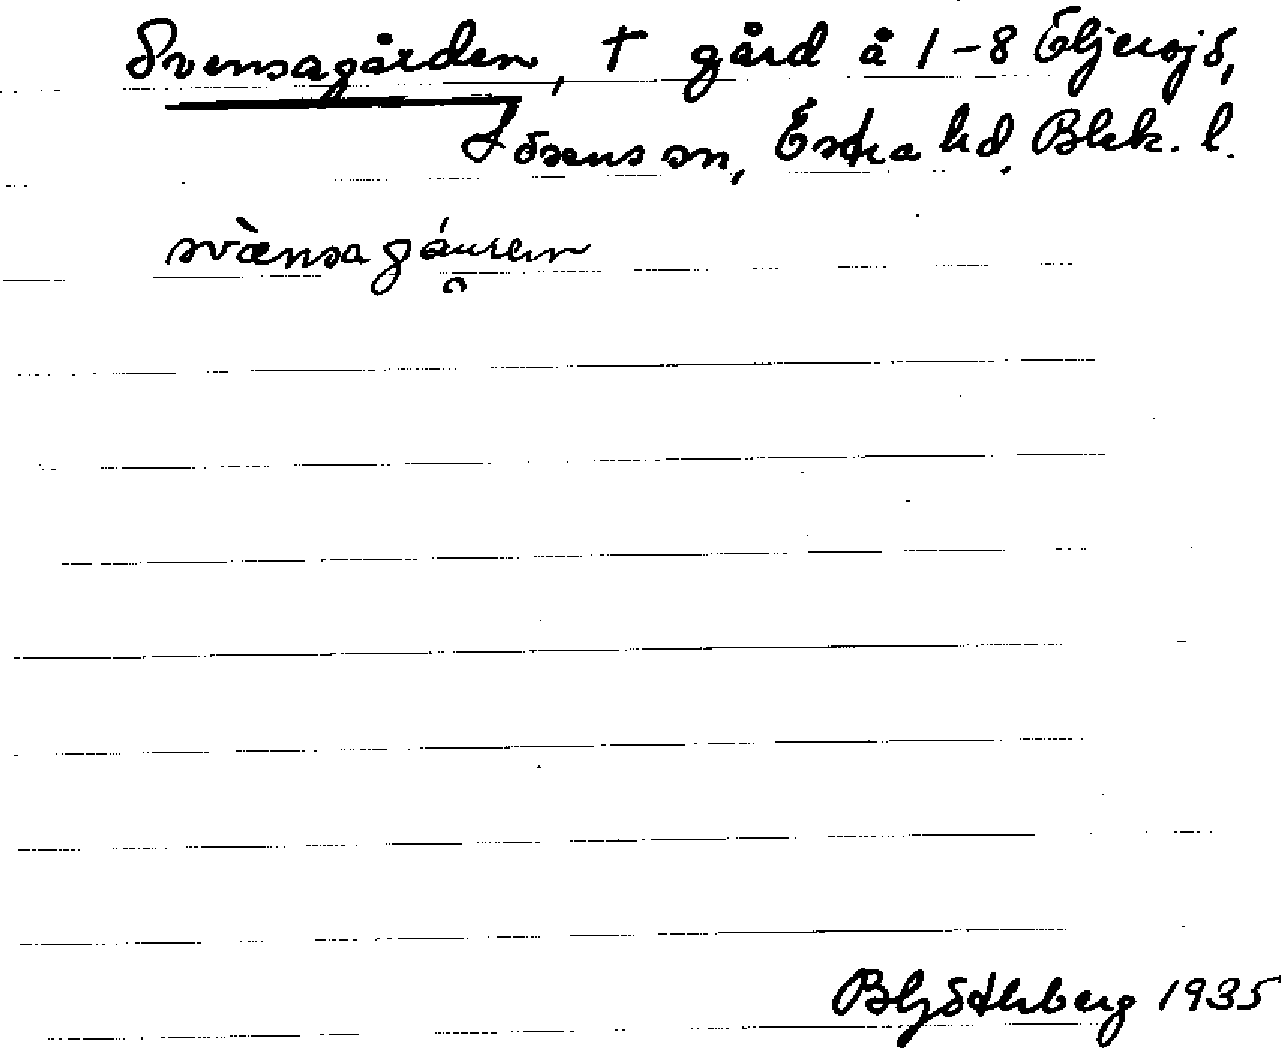 Svensagården, † gård å 1-8 Eljersjö,
Jösens sn, Östra hd, Blek. l.
svènsagáuren
BHjöthberg 1935